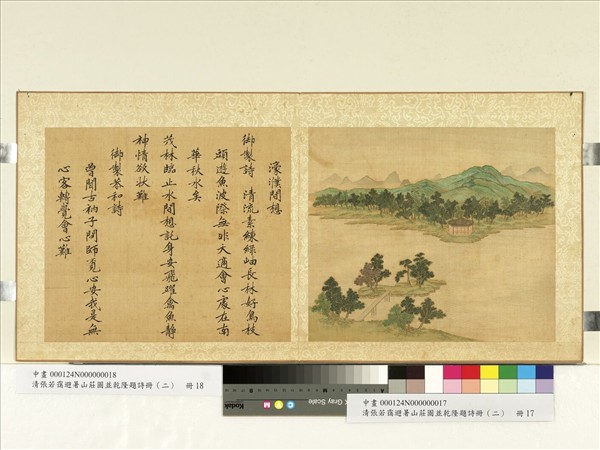 濠濮間想
御製詩　清流素練綠岫長林好鳥枝
頭遊魚波際無非天適會心處在南
華秋水矣
茂林臨止水間想託身安飛躍禽魚靜
神情欲狀難
御製恭和詩
曾聞古衲子問師覓心安我是無
心客轉覺會心難
中畫 000124N000000018
清張若靄避暑山莊圖並乾隆題詩冊（二）　冊 18
Kodak
Gray Scale
C
M
中畫 000124N000000017
清張若靄避暑山莊圖並乾隆題詩冊（二）　冊 17